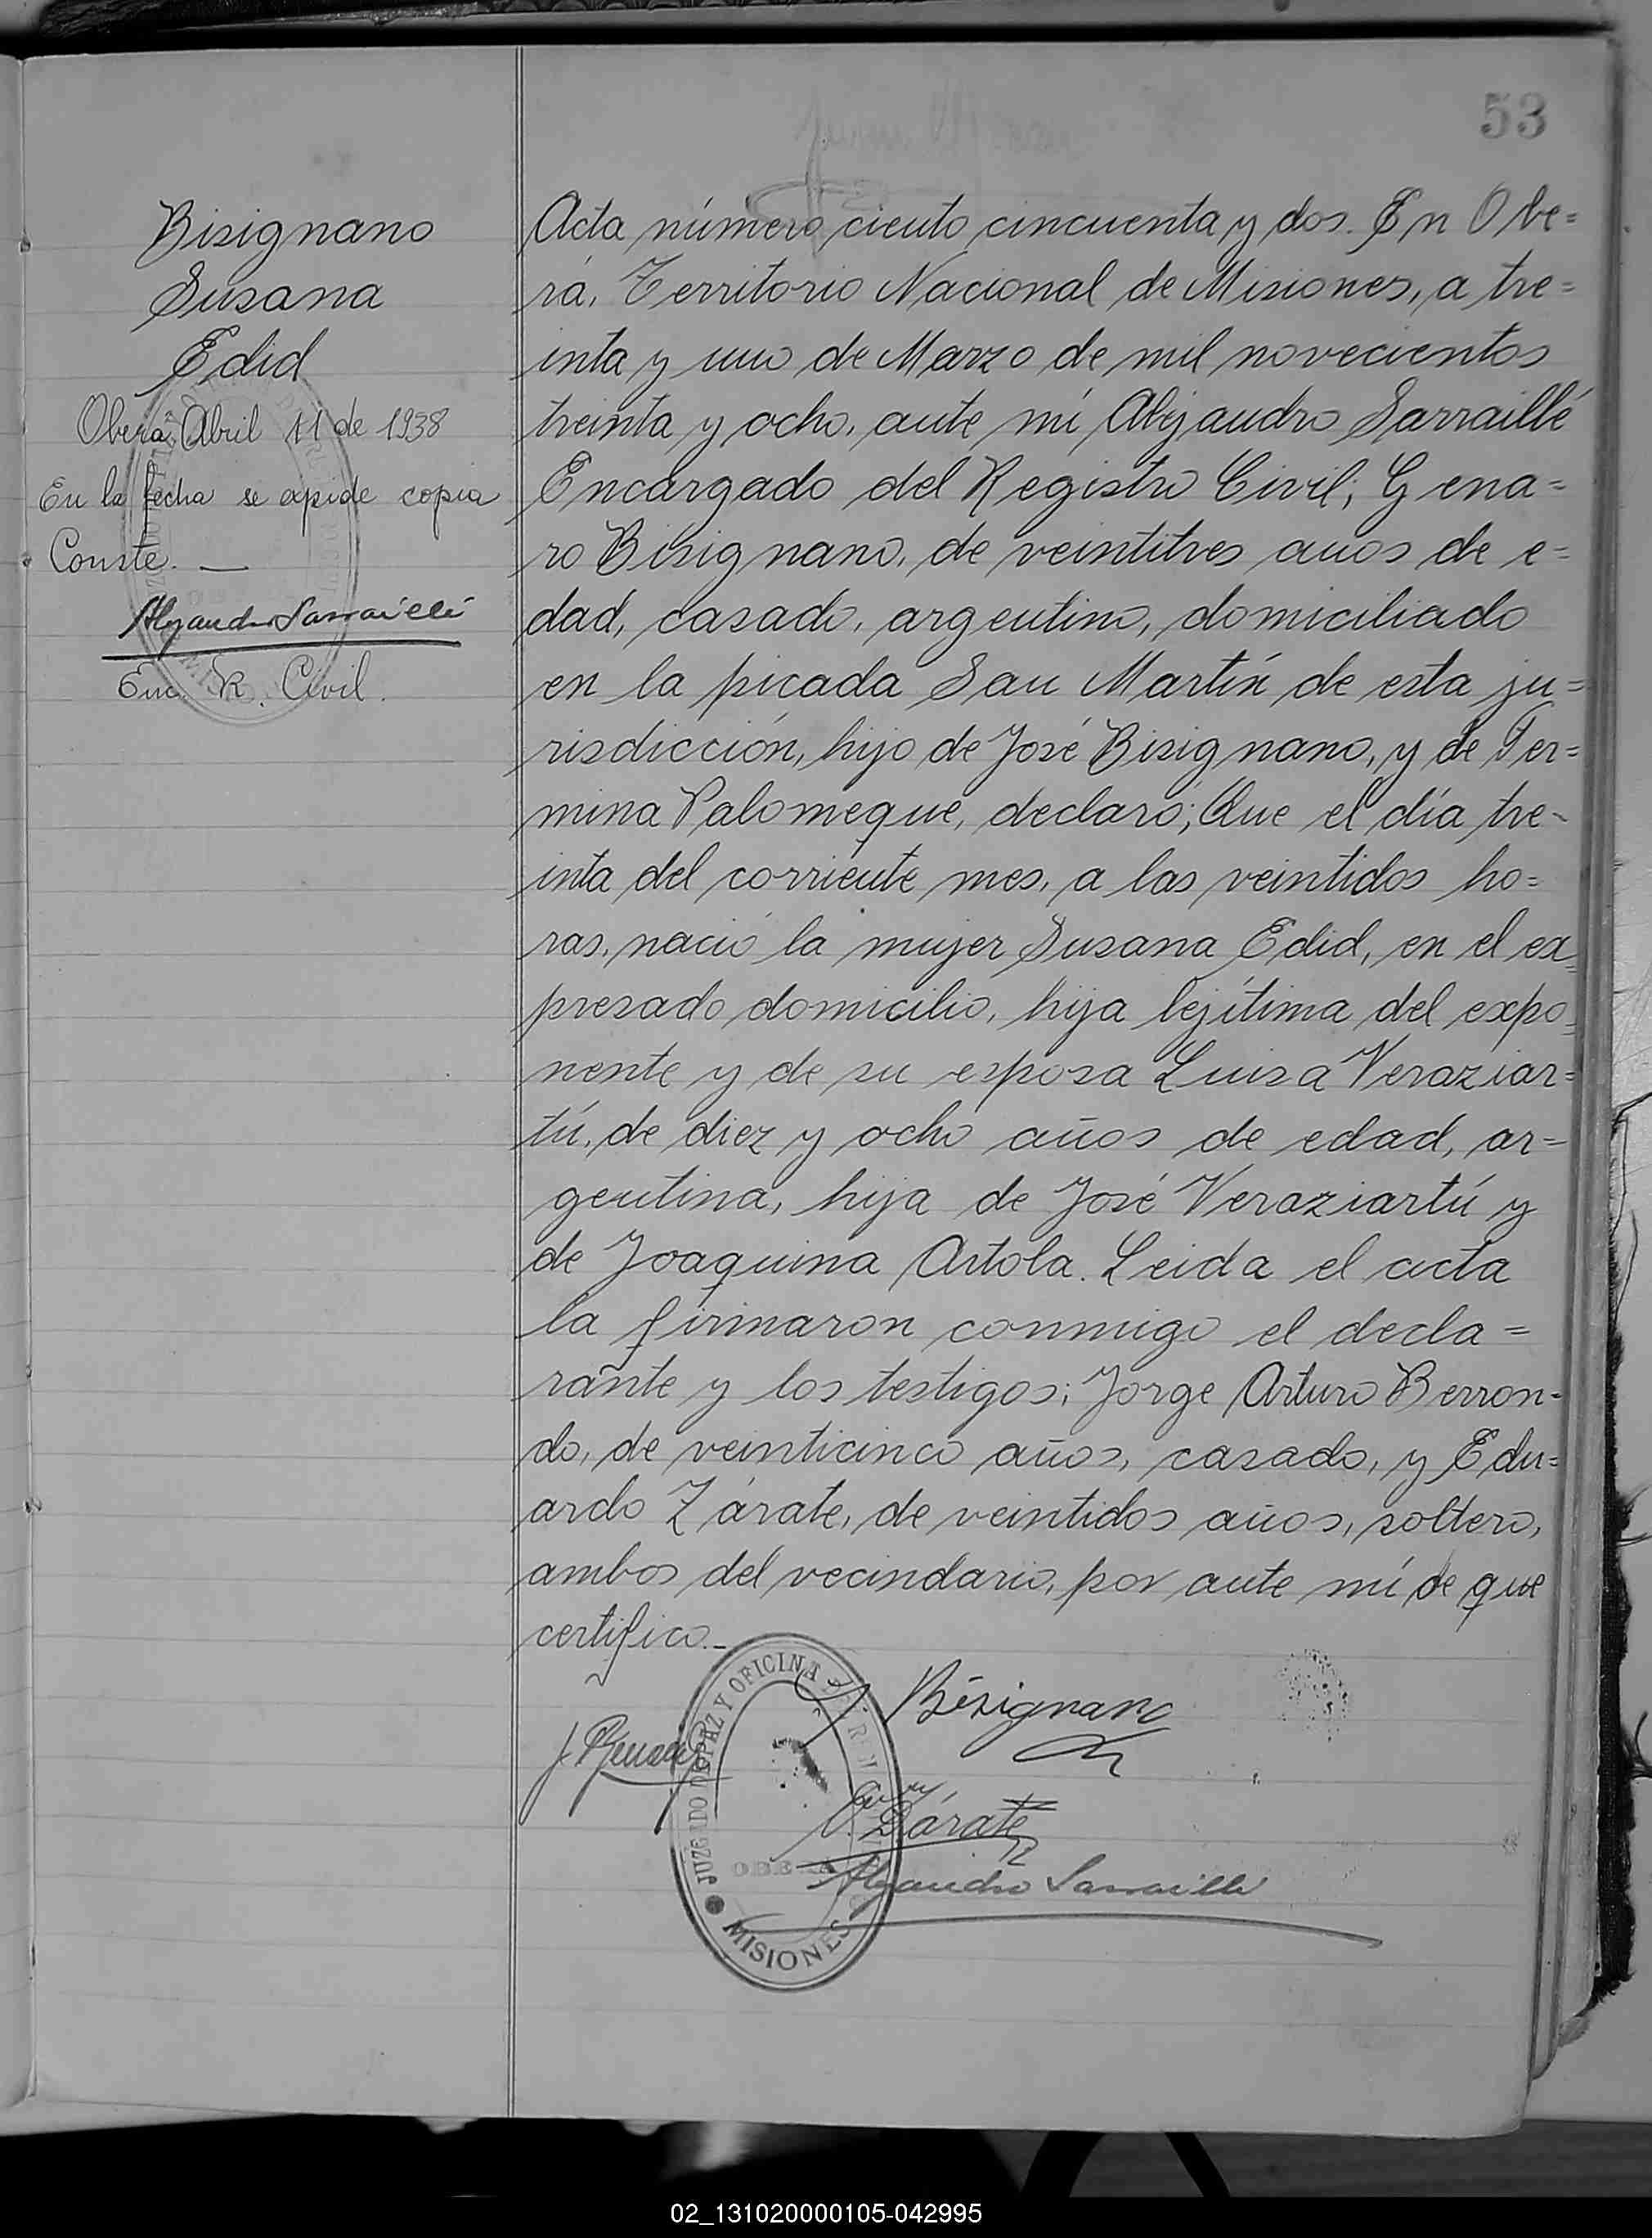 53
Bisignano
Susana
Edid
Oberá, Abril 11 de 1938
En la fecha se expide copia
Conste. —
Alejandro Sarraillé
Enc. R. Civil.
Acta número ciento cincuenta y dos. En Obe=
rá, Territorio Nacional de Misiones, a tre=
inta y uno de Marzo de mil novecientos
treinta y ocho, ante mí Alejandro Sarraillé
Encargado del Registro Civil; Gena=
ro Bisignano, de veintitres años de e=
dad, casado, argentino, domiciliado
en la picada San Martín de esta ju=
risdicción, hijo de José Bisignano, y de Fer=
mina Palomeque, declaró; Que el día tre-
inta del corriente mes, a las veintidos ho=
ras, nació la mujer Susana Edid, en el ex=
presado domicilio, hija lejítima del expo=
nente y de su esposa Luisa Veraziar=
tú, de diez y ocho años de edad, ar=
gentina, hija de José Veraziartú y
de Joaquina Artola. Leida el acta
la firmaron conmigo el decla=
rante y los testigos; Jorge Arturo Berron-
do, de veinticinco años, casado, y Edu=
ardo Zárate, de veintidos años, soltero,
ambos del vecindario, por ante mí de que
certifico.-
Bisignano
Zárate
Alejandro Sarraillé
JUZGADO DE PAZ Y OFICINA DEL
OBERA
MISIONES
02_131020000105-042995